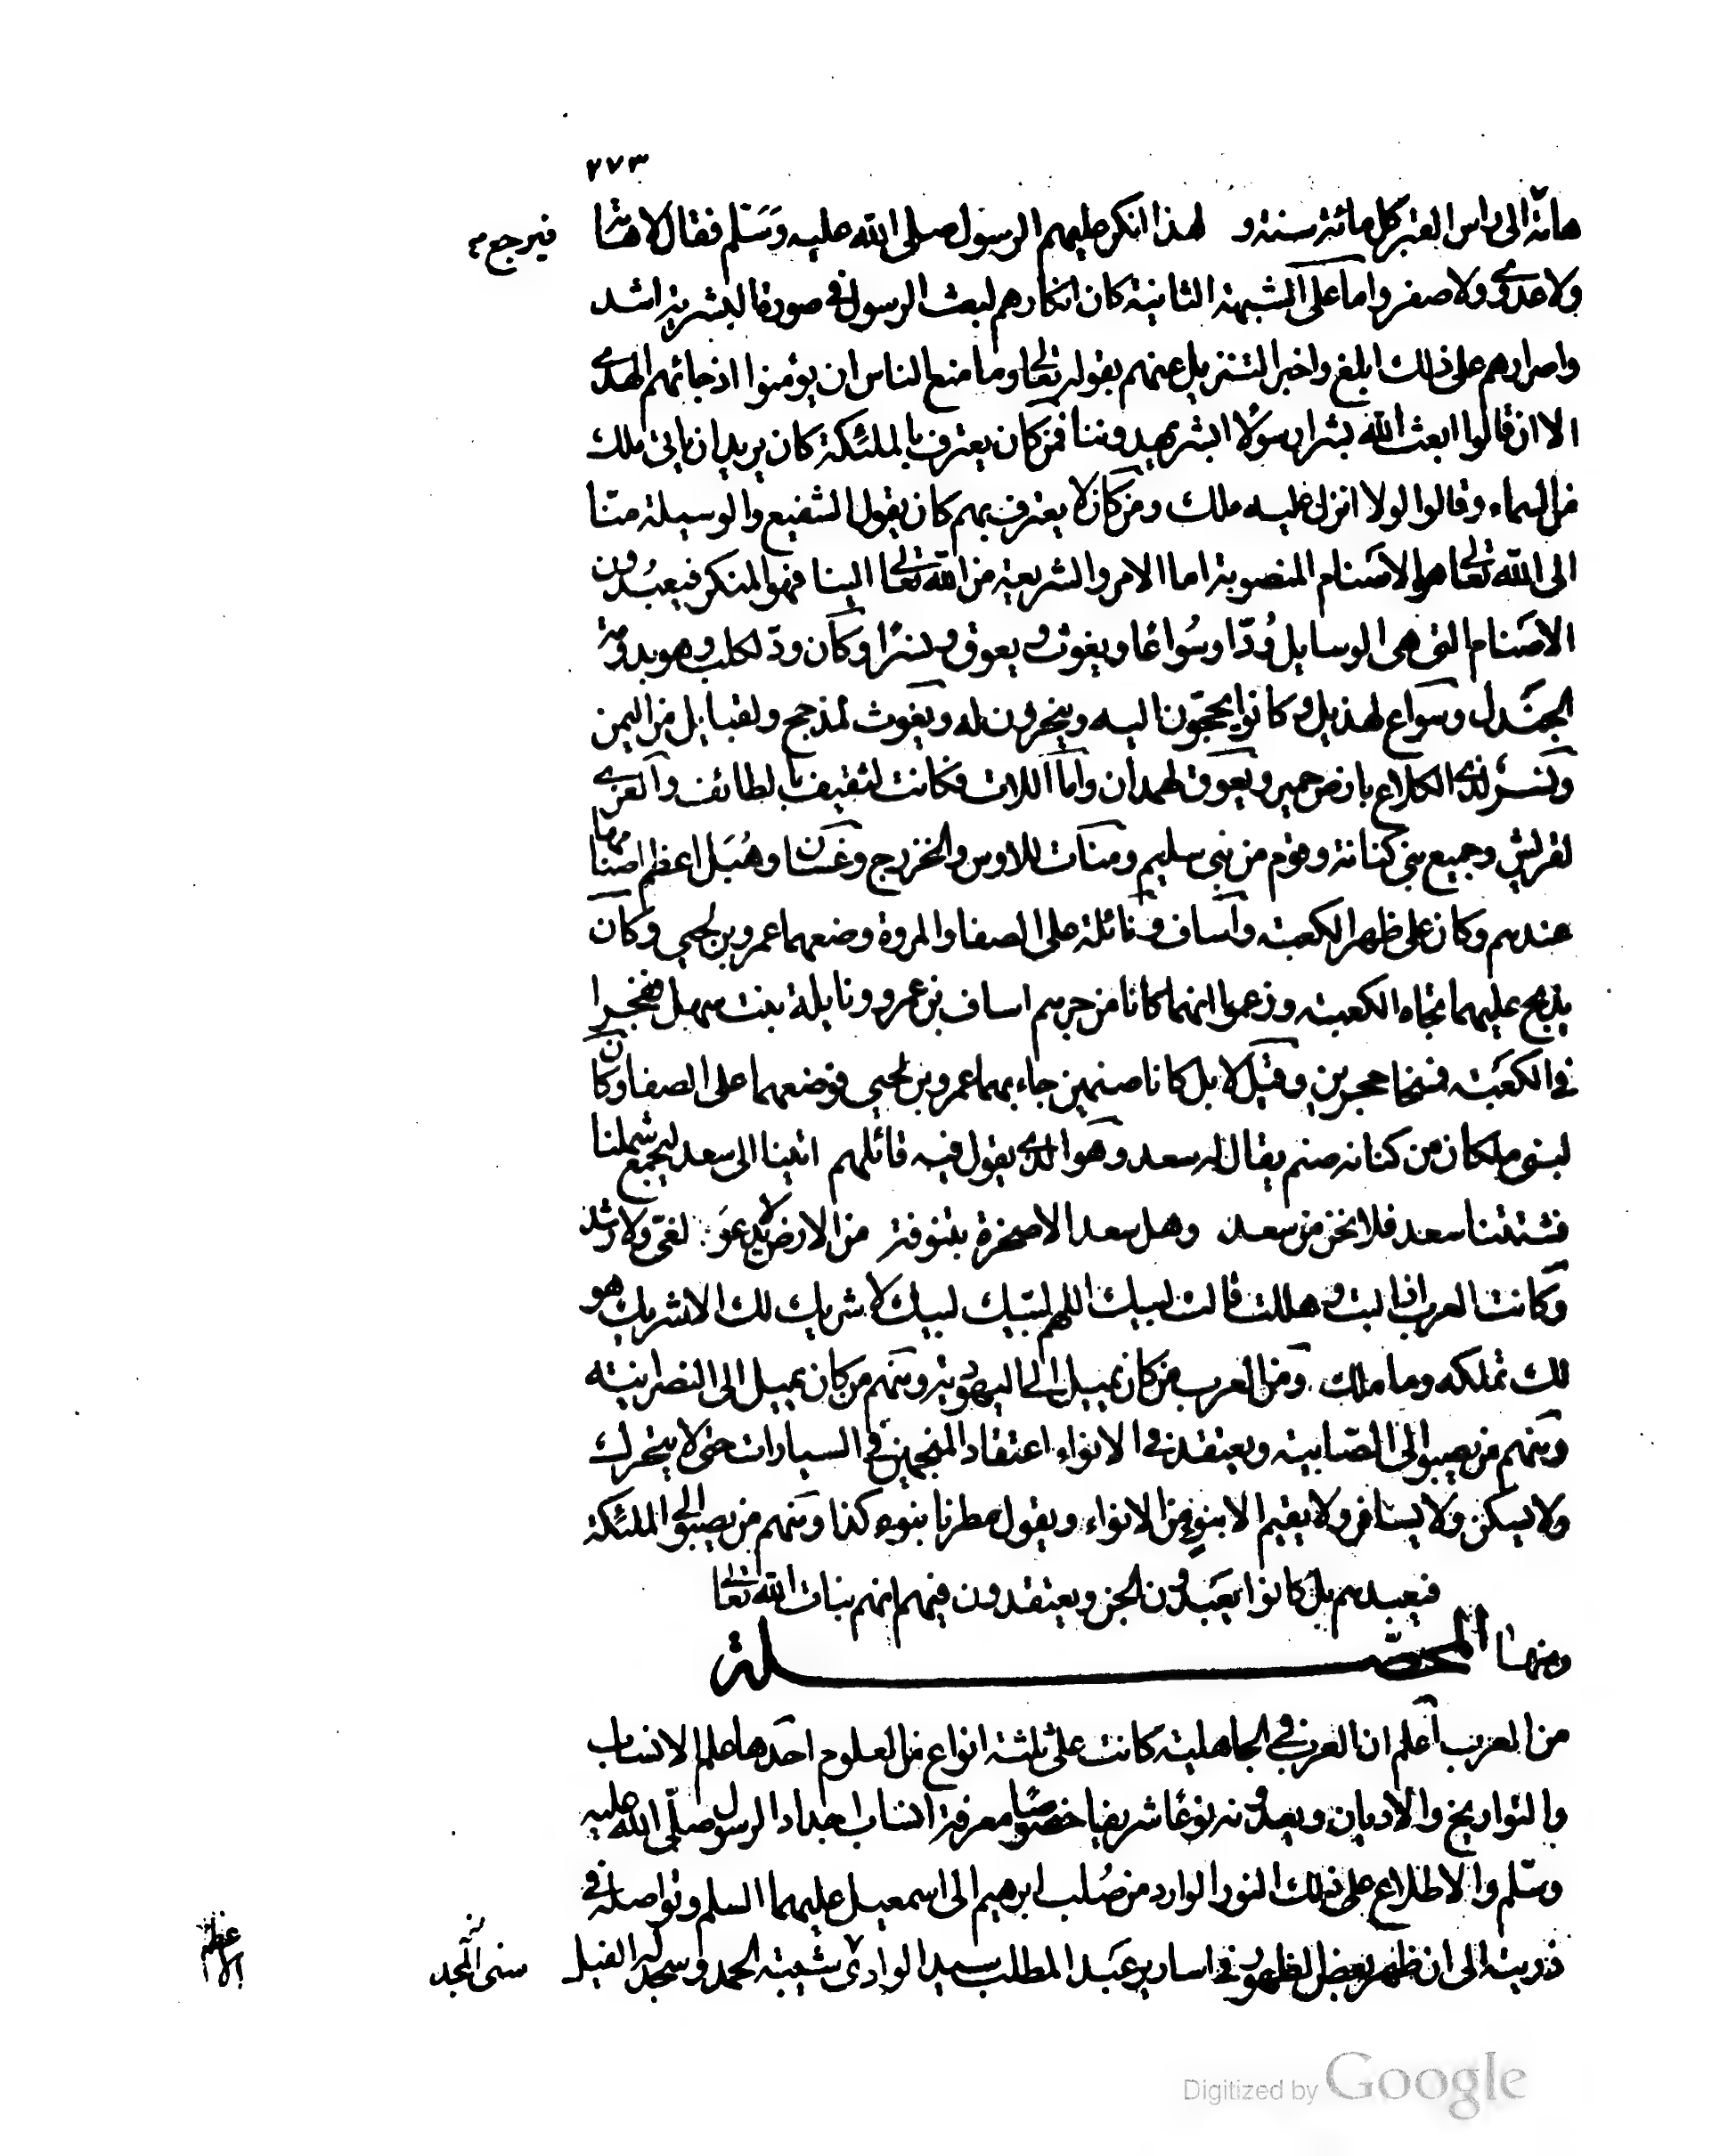 ٢٧٣
هامّة الى راس القبر كل مائة سنة و لهذا انكر عليهم الرسول صلى الله عليه وَسَلم فقال لا هامة
فيرجع
ولا عدوى ولا صفر واما على الشبهة الثانية كان انكارهم لبعث الرسول فى صورة البشرية اشد
واصرارهم على ذلك ابلغ واخبر التنزيل عنهم بقوله تعالى وما منع الناس ان يؤمنوا اذ جائهم الهدى
الا ان قالوا ابعث الله بشرا رسولًا ابشر يهدوننا فمن كان يعترف بالملئكة كان يريد ان ياتى ملك
من السماء وقالوا لولا انزل عليه ملك ومن كان لا يعترف بهم كان يقول الشفيع والوسيلة منّا
الى الله تعالى هو الاصَنام المنصوبة اما الامر والشريعة من الله تعالى الينا فهو المنكر فيعبُدون
الاصَنام التى هى الوسايل وُدّا وسُواعًا ويغوث ويعوق ونسرًا وكان ودّ لكلب وهو بدومة
الجَندل وسواع لهذيل وكانوا يحجّون اليه وينحرون له ويغوث لمذحج ولقبايل من اليمن
ونسر لذى الكلاع بارض حمير ويعوق لهمدان واما اللات فكانت لثقيف بالطائف والعزى
لقريش وجميع بنى كنانة وقوم من بنى سليم ومنات للاوس والخزرج وغسّان وهُبَل اعظم اصنامها
عندهم وكان على ظهر الكعبة واساف ونائلة على الصفا والمروة وضعهما عمرو بن لحيى وكان
يذبح عليهما تجاه الكعبة وزعموا انهما كانا من جرهم اساف بن عمرو ونايلة بنت سهل ففجرا
فى الكعَبة فمسخا حجرين وقيل لا بل كانا صنمين جاء بهما عمرو بن لحيى فوضعهما على الصفا وكان
لبنى ملكان من كنانه صنم يقال له سعد وهو الذى يقول فيه قائلهم اتينا الى سعد ليجمع شملنا
فشتتنا سعد فلا نحن من سعد وهل سعد الا صخرة بتنوفة من الارض لا يدعوَ لغىّ ولا رشد
وكانت العرب اذا لبت وهللت قالت لبيك اللهم لبّيك لبيك لا شريك لك الا شريك هو
لك تملكه وما ملك ومن العرب من كان يميل الى اليهودية ومنهم من كان يميل الى النصرانية
ومنهم من يصبو الى الصّابية ويعتقد فى الانواء اعتقاد المنجمين فى السيارات حتى لا يتحرك
ولا يسكن ولا يسافر ولا يقيم الا بنوءٍ من الانواء ويقول مطرنا بنوء كذا ومنهم من يصبو الى الملئكة
فيعبدهم بل كانوا يعَبدون الجن ويعتقدون فيهم انهم بنات الله تعالى
ومنها المحصّلة
من العرب اعلم ان العرب فى الجاهلية كانت على ثلثة انواع من العلوم احَدها علم الانساب
والتواريخ والاديان ويعدونه نوعًا شريفا خصوصًا معرفة انساب اجداد الرسول صلّى الله عليه
وسَلم والاطلاع على ذلك النور الوارد من صُلب ابرهيم الى اسمعيل عليهما السلم وتواصله فى
ذريته الى ان ظهر بعض الظهور فى اسارير عَبد المطلب سيد الوادى شيبة الحمد وسجد له الفيل
الاعظم